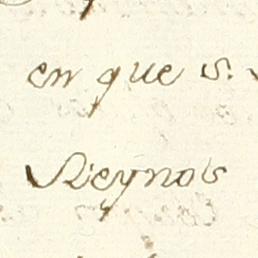 en que S.
Reynos